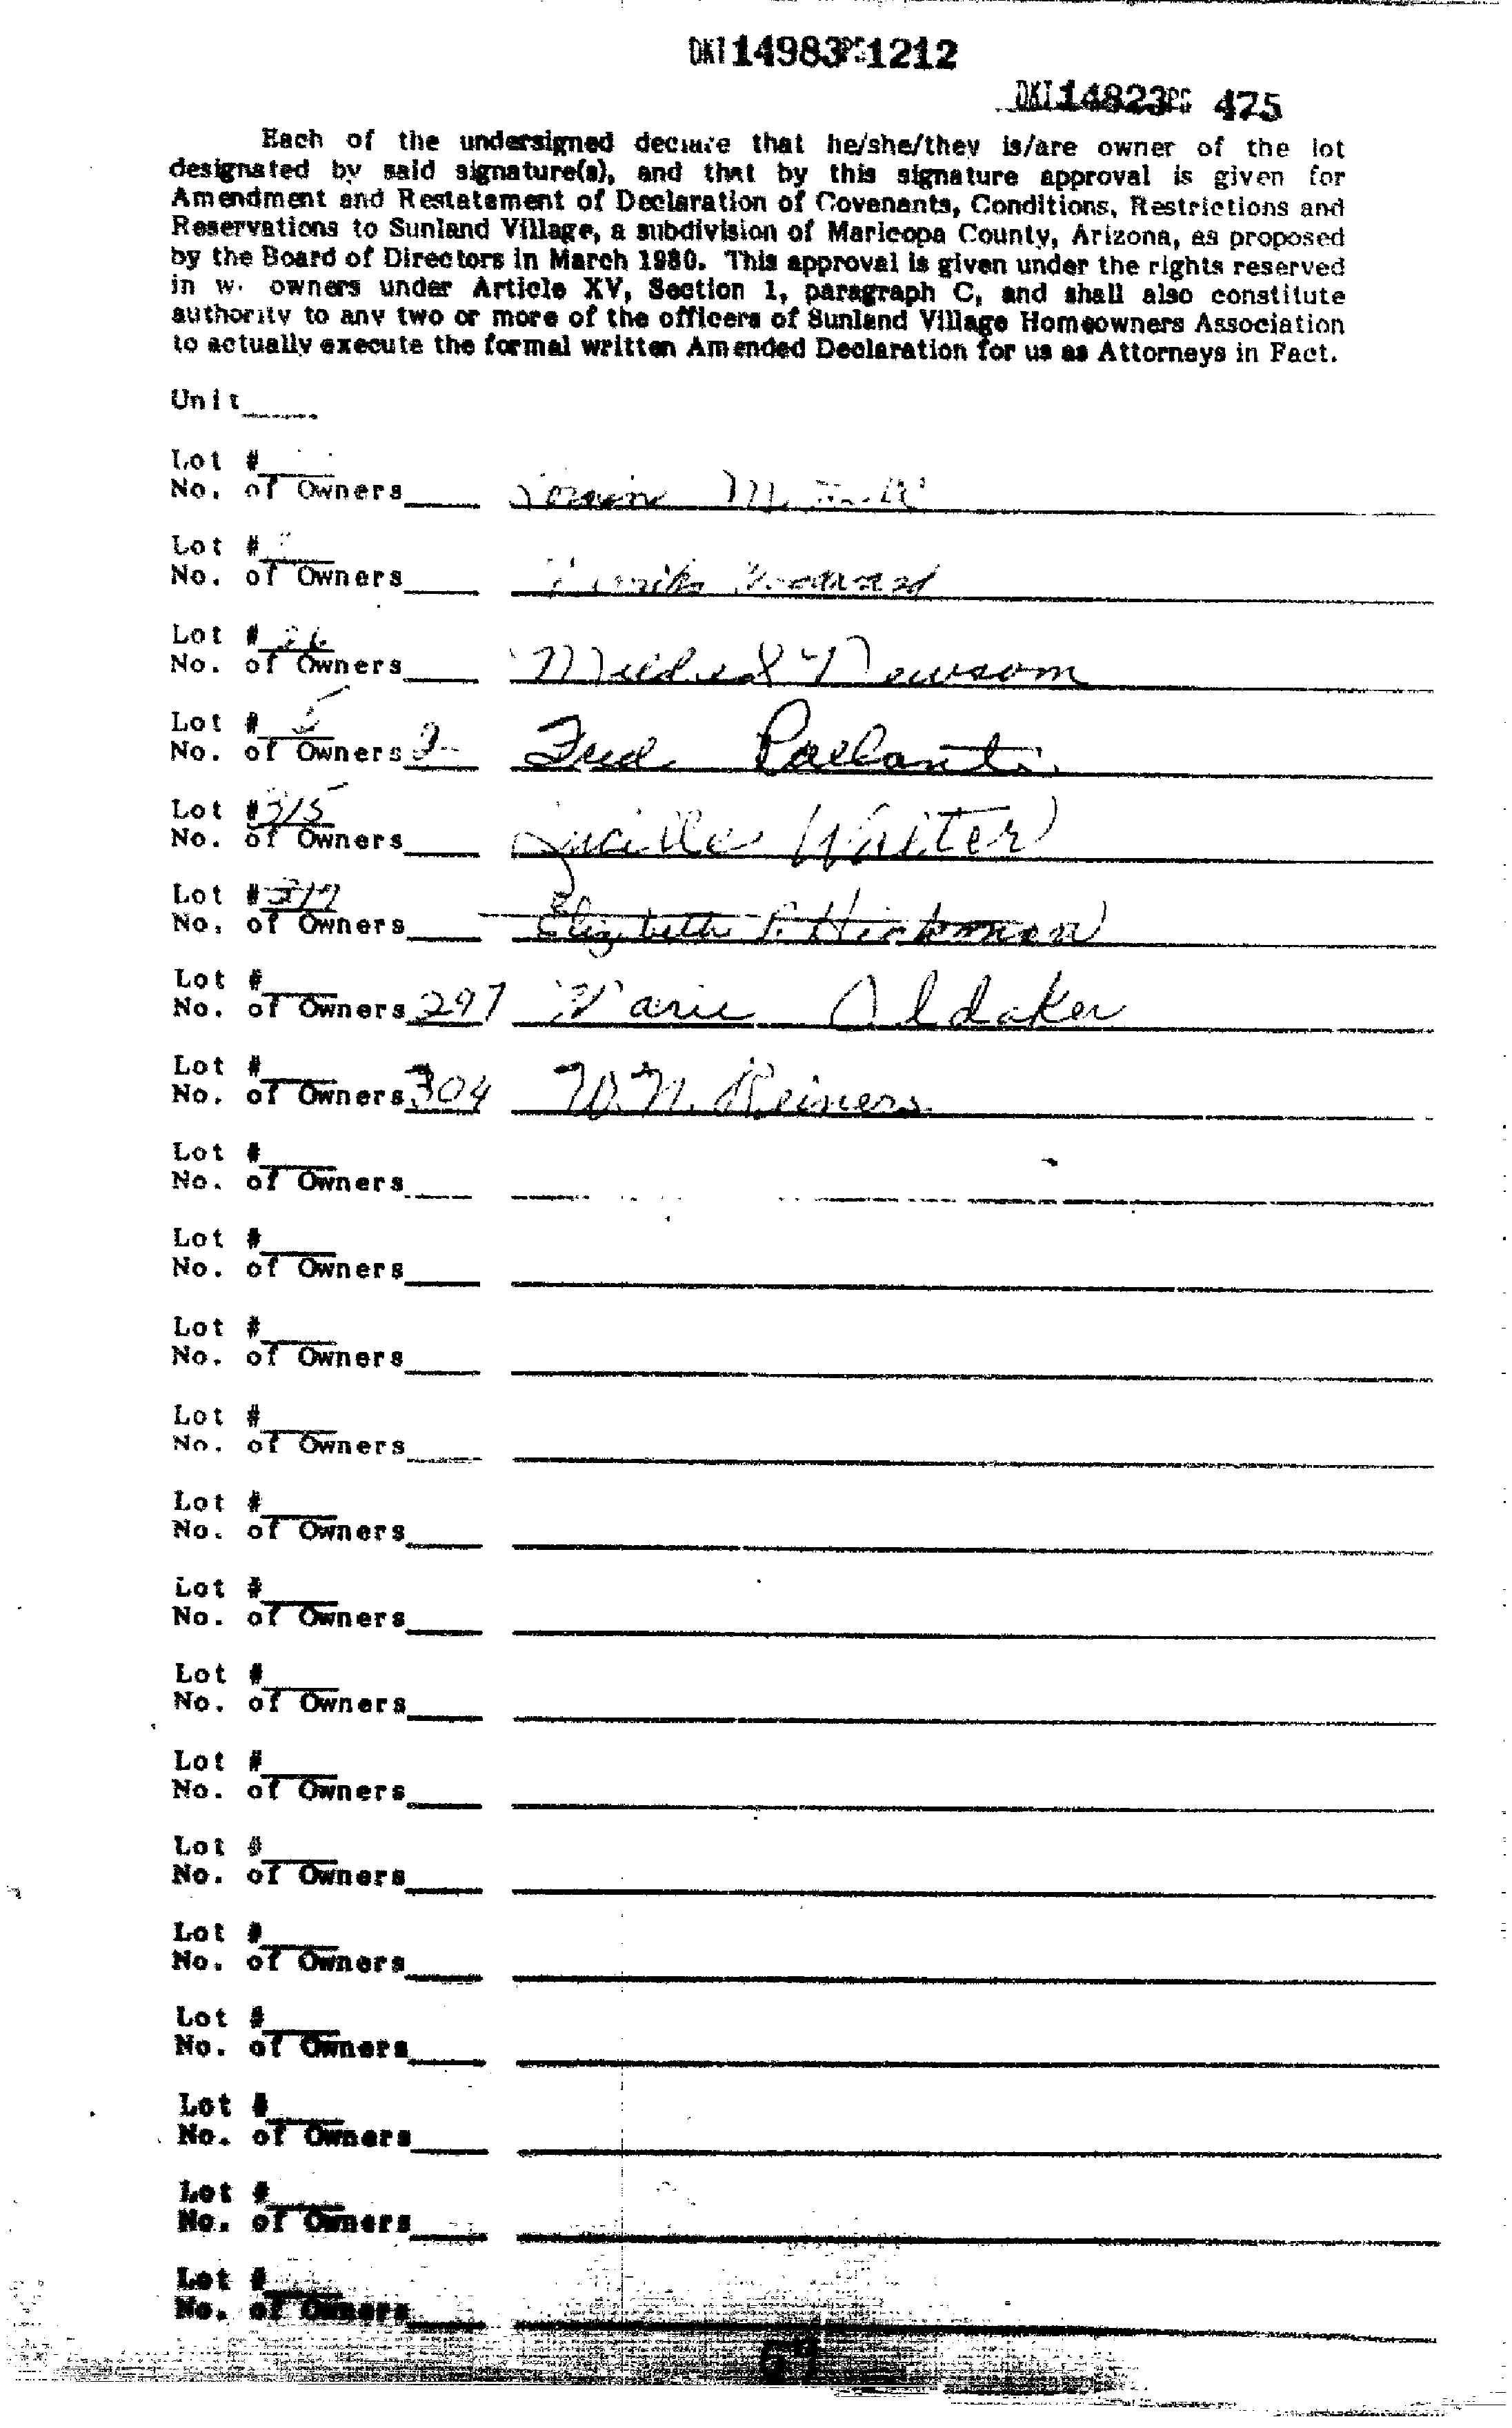 DKT 14983 PG 1212
DKT 14823 PG 475
Each of the undersigned declare that he/she/they is/are owner of the lot
designated by said signature(s), and that by this signature approval is given for
Amendment and Restatement of Declaration of Covenants, Conditions, Restrictions and
Reservations to Sunland Village, a subdivision of Maricopa County, Arizona, as proposed
by the Board of Directors in March 1980. This approval is given under the rights reserved
in owners under Article XV, Section 1, paragraph C, and shall also constitute
authority to any two or more of the officers of Sunland Village Homeowners Association
to actually execute the formal written Amended Declaration for us as Attorneys in Fact.
Unit
Lot #
No. of Owners M.
Lot #
No. of Owners
Lot # 26
No. of Owners Mildred Newsom
Lot # 5
No. of Owners 2 Fred Pallanti
Lot # 315
No. of Owners Lucille Walter
Lot #
No. of Owners Elizabeth P. Hickman
Lot #
No. of Owners 297 Marie Oldaker
Lot #
No. of Owners 304 W. N. Reiners
Lot #
No. of Owners
Lot #
No. of Owners
Lot #
No. of Owners
Lot #
No. of Owners
Lot #
No. of Owners
Lot #
No. of Owners
Lot #
No. of Owners
Lot #
No. of Owners
Lot #
No. of Owners
Lot #
No. of Owners
Lot #
No. of Owners
Lot #
No. of Owners
Lot #
No. of Owners
Lot #
No. of Owners